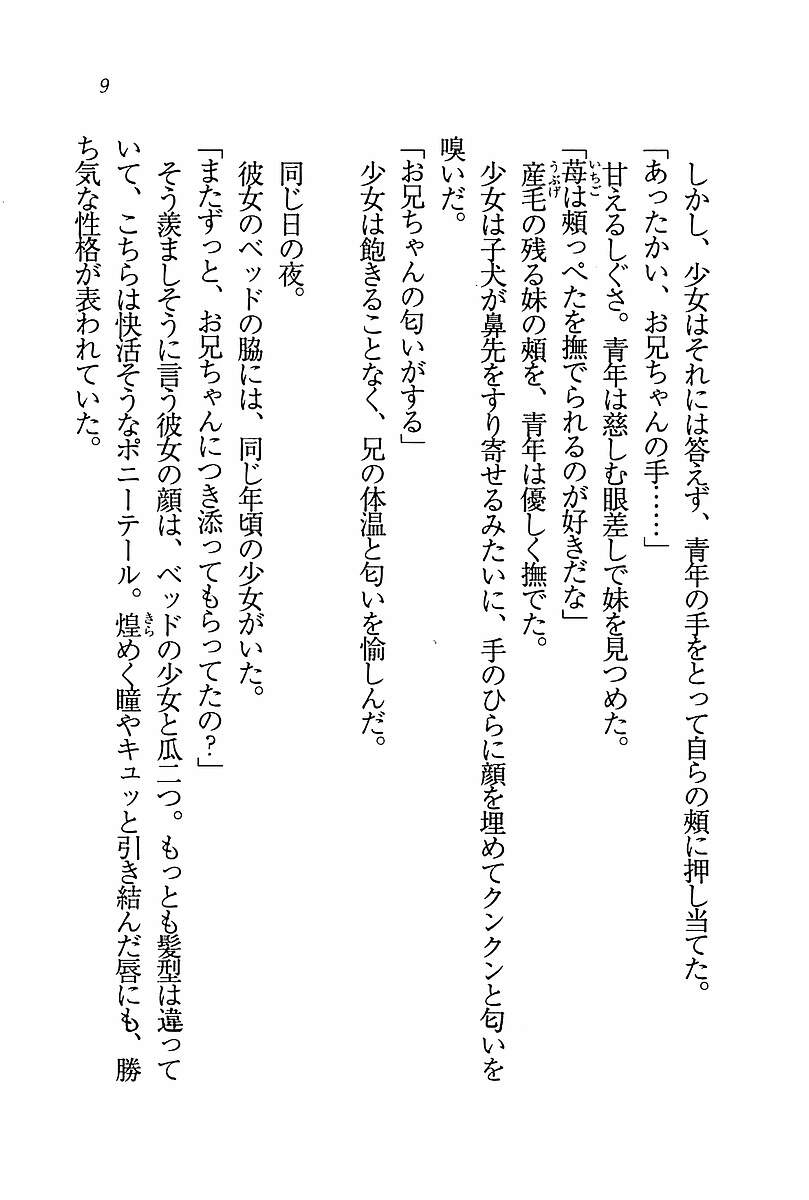 9
しかし、少女はそれには答えず、青年の手をとって自らの頰に押し当てた。
「あったかい、お兄ちゃんの手……」
甘えるしぐさ。青年は慈しむ眼差しで妹を見つめた。
「苺は頰っぺたを撫でられるのが好きだな」
いちご
産毛の残る妹の頰を、青年は優しく撫でた。
うぶげ
少女は子犬が鼻先をすり寄せるみたいに、手のひらに顔を埋めてクンクンと匂いを
嗅いだ。
「お兄ちゃんの匂いがする」
少女は飽きることなく、兄の体温と匂いを愉しんだ。
同じ日の夜。
彼女のベッドの脇には、同じ年頃の少女がいた。
「またずっと、お兄ちゃんにつき添ってもらってたの？」
そう羨ましそうに言う彼女の顔は、ベッドの少女と瓜二つ。もっとも髪型は違って
いて、こちらは快活そうなポニーテール。煌めく瞳やキュッと引き結んだ唇にも、勝
きら
ち気な性格が表われていた。